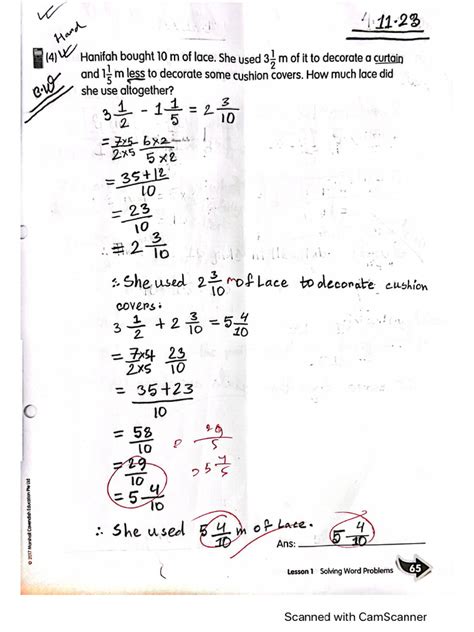 Hard
4.11.23
(4) Hanifah bought 10 m of lace. She used 3 1/2 m of it to decorate a curtain
and 1 1/5 m less to decorate some cushion covers. How much lace did
she use altogether?
3 1/2 - 1 1/5 = 2 3/10
= 7×5/2×5 6×2/5×2
= 35+12/10
= 23/10
= 2 3/10
∴ She used 2 3/10 m of Lace to decorate cushion
covers:
3 1/2 + 2 3/10 = 5 4/10
= 7×5/2×5 23/10
= 35+23/10
= 58/10
29/5
= 29/10
= 5 4/10
∴ She used 5 4/10 m of Lace.
Ans: 5 4/10
© 2017 Marshall Cavendish Education Pte Ltd
Lesson 1 Solving Word Problems 65
Scanned with CamScanner